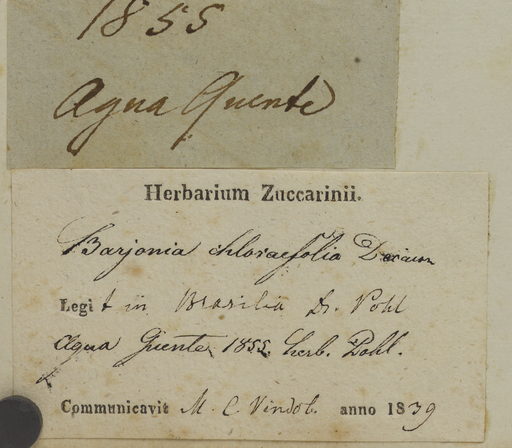 1855
Agua Quente
Herbarium Zuccarinii.
Barjonia chloraefolia Decaisn
Legit in Brasilia Dr. Pohl
Agua Quente 1855. herb. Pohl.
Communicavit M. C. Vindob. anno 1839